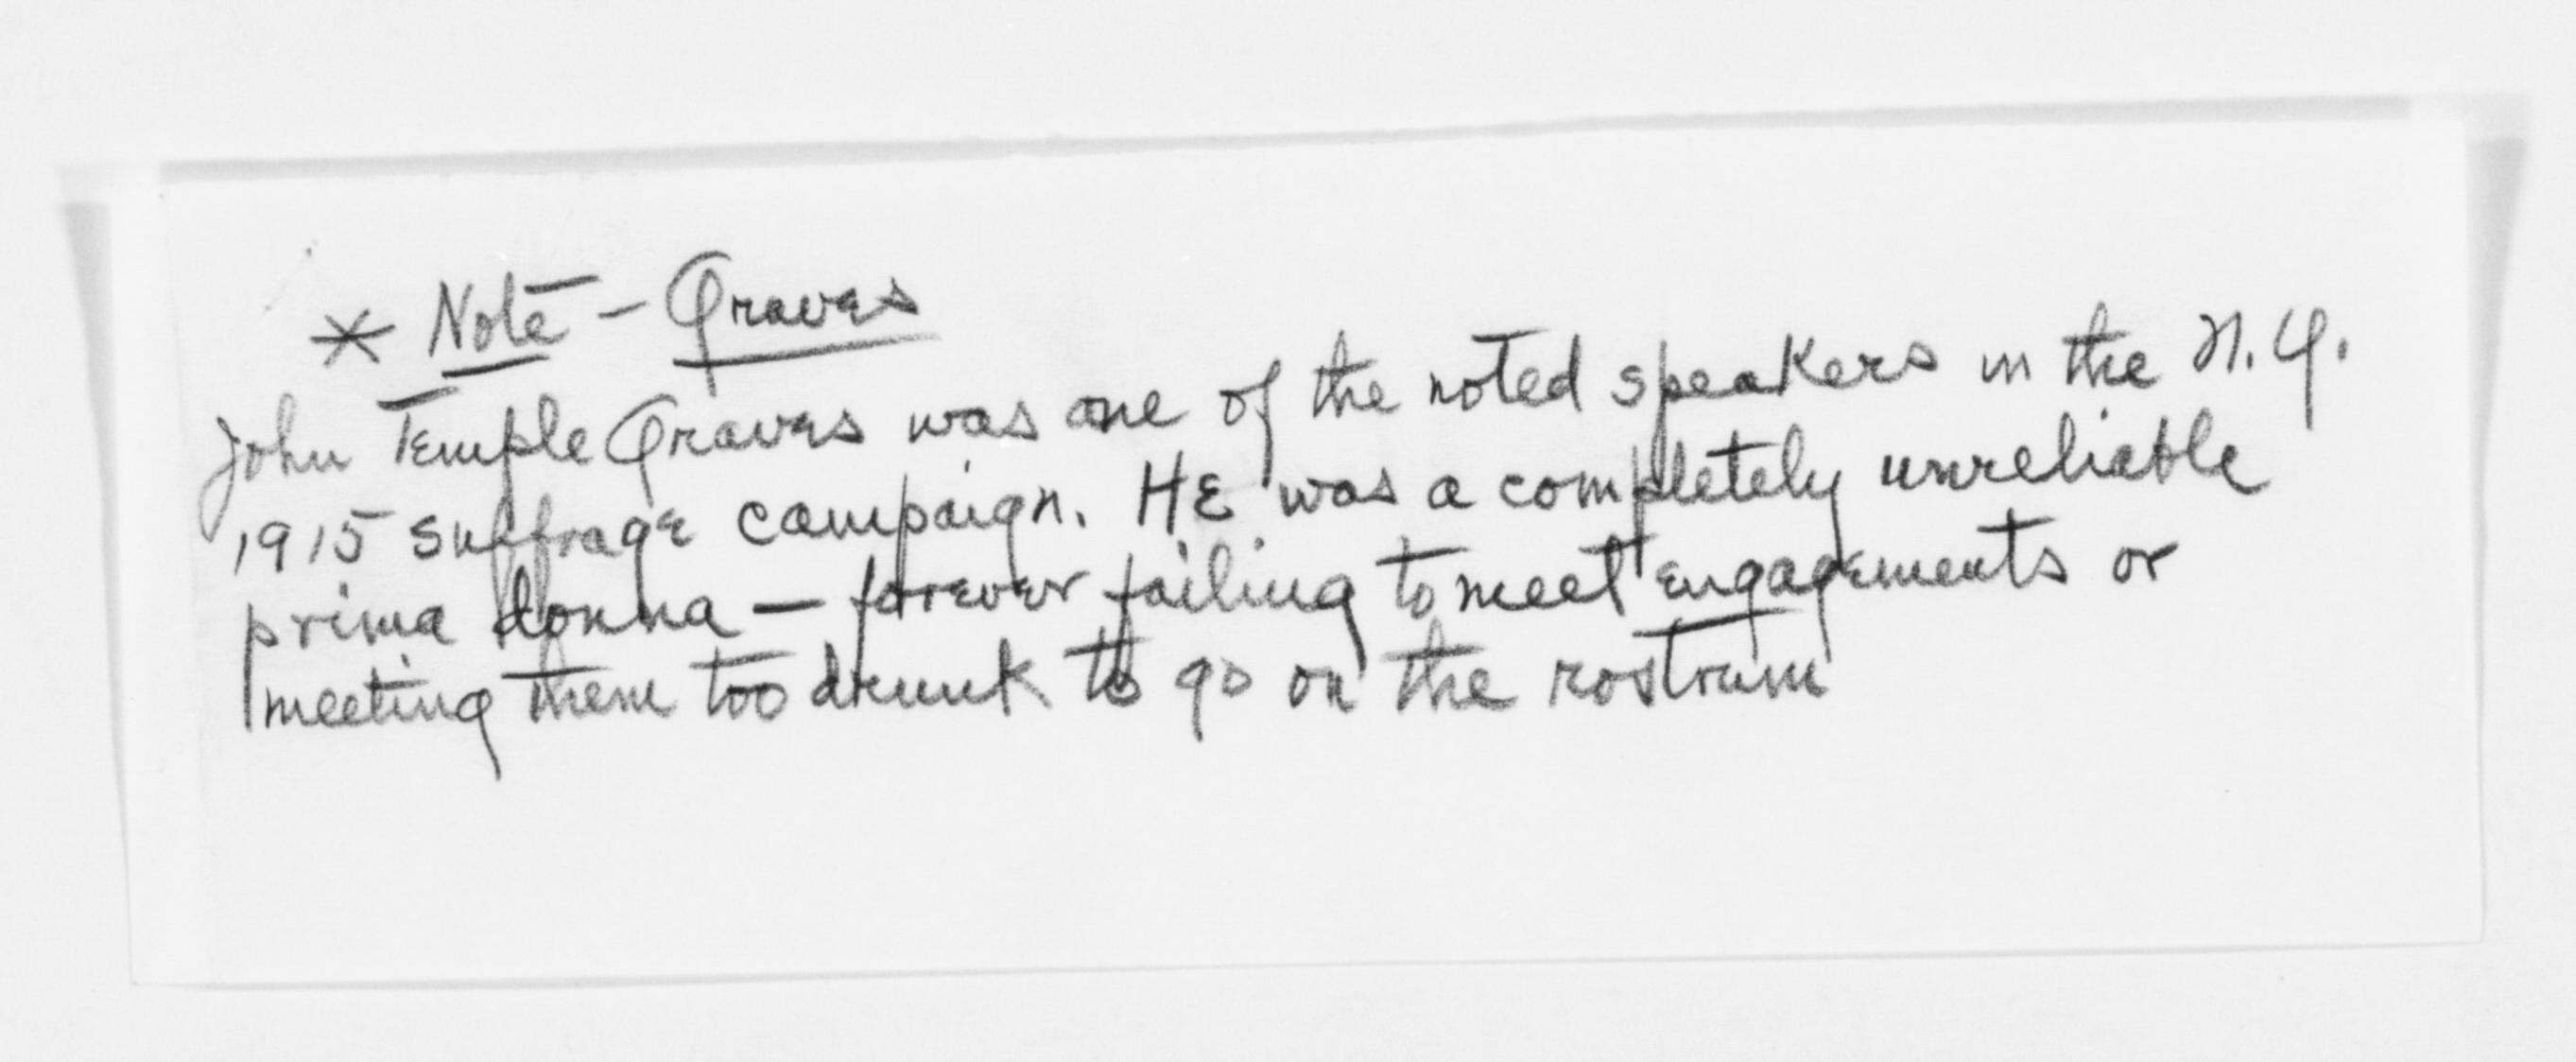 * Note - Graves
John Temple Graves was one of the noted speakers in the N.Y.
1915 suffrage campaign. He was a completely unreliable
prima donna — forever failing to meet engagements or
meeting them too drunk to go on the rostrum